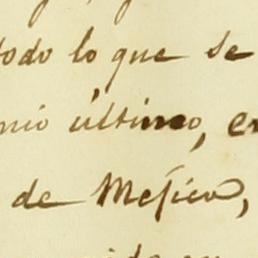 todo lo que se
nio último, en
de Mejico,